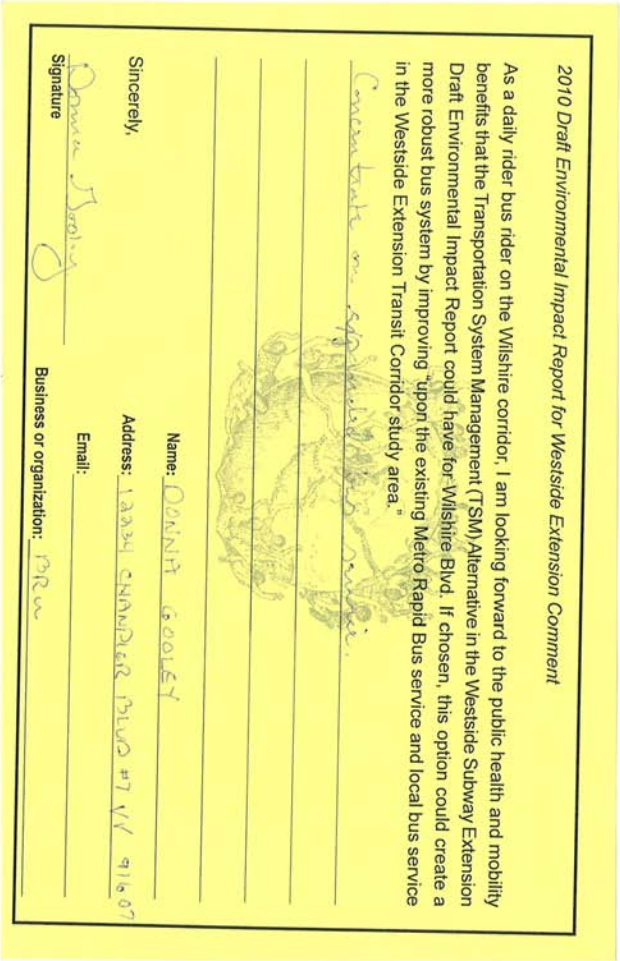 2010 Draft Environmental Impact Report for Westside Extension Comment
As a daily rider bus rider on the Wilshire corridor, I am looking forward to the public health and mobility
benefits that the Transportation System Management (TSM) Alternative in the Westside Subway Extension
Draft Environmental Impact Report could have for Wilshire Blvd. If chosen, this option could create a
more robust bus system by improving "upon the existing Metro Rapid Bus service and local bus service
in the Westside Extension Transit Corridor study area."
Concentrate on expanded bus service.
Sincerely,
Donna Gooley
Signature
Name: DONNA GOOLEY
Address: 12234 CHANDLER BLVD #7 VV 91607
Email:
Business or organization: BRU